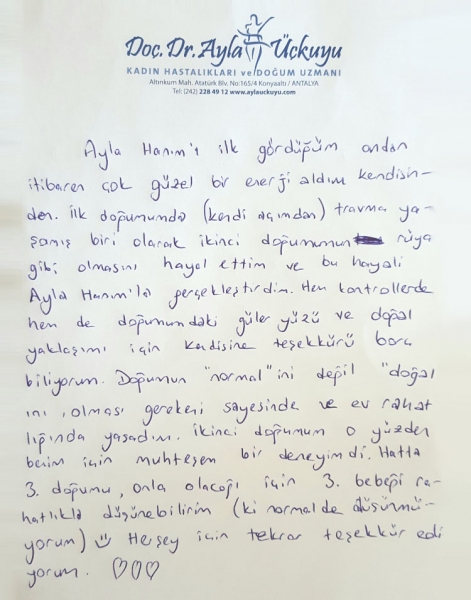 Doc. Dr. Ayla Üçkuyu
KADIN HASTALIKLARI ve DOĞUM UZMANI
Altınkum Mah. Atatürk Blv. No:165/4 Konyaaltı / ANTALYA
Tel: (242) 228 49 12 www.aylauckuyu.com
Ayla Hanım'ı ilk gördüğüm andan
itibaren çok güzel bir enerji aldım kendisin-
den. İlk doğumumda (kendi açımdan) travma ya-
şamış biri olarak ikinci doğumumun rüya
gibi olmasını hayal ettim ve bu hayali
Ayla Hanım'la gerçekleştirdim. Hem kontrollerde
hem de doğumundaki güler yüzü ve doğal
yaklaşımı için kendisine teşekkürü borç
biliyorum. Doğumun "normal"ini değil "doğal
ını, olması gerekeni sayesinde ve ev rahat
lığında yaşadım. ikinci doğumum o yüzden
benim için muhteşem bir deneyimdi. Hatta
3. doğumu, onla olacağı için 3. bebeği ra-
hatlıkla düşünebilirim (ki normalde düşünmü-
yorum) Herşey için tekrar teşekkür edi
yorum. ♡♡♡